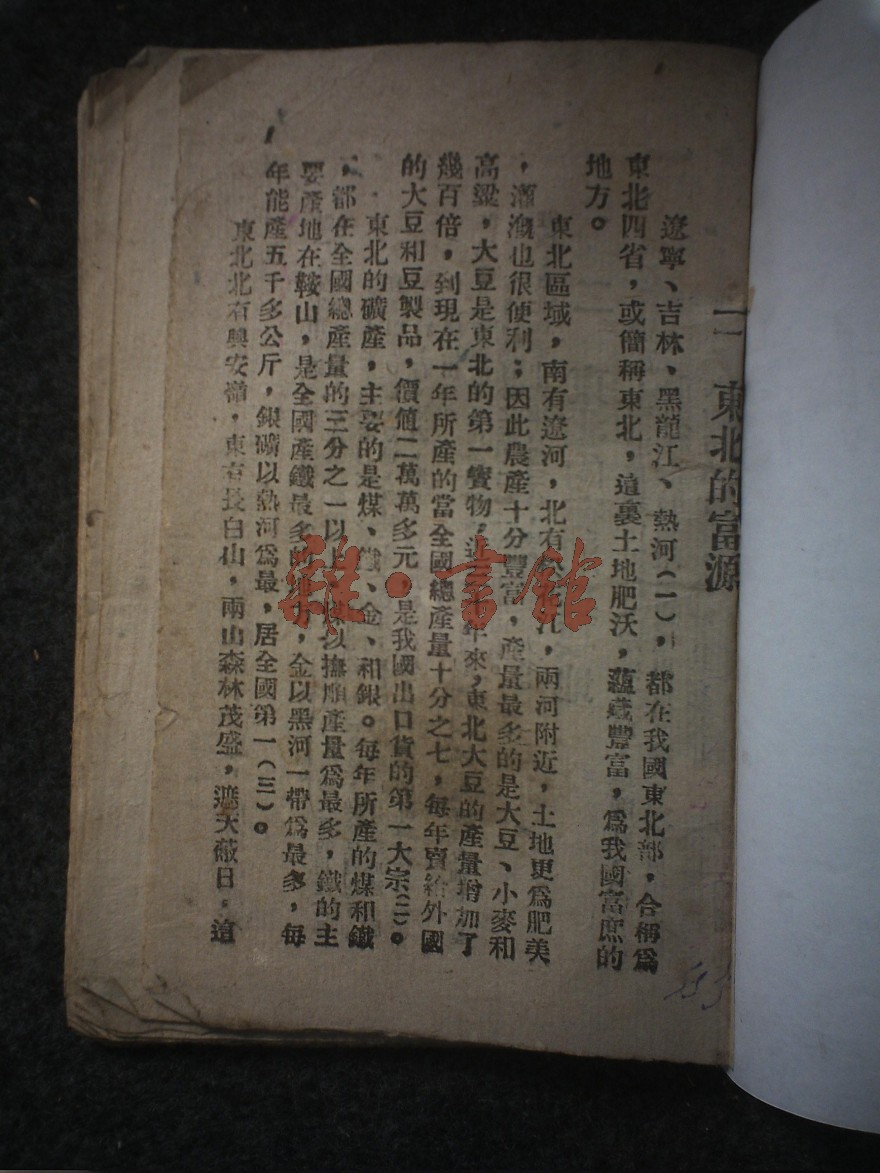 東北的富源
遼寧、吉林、黑龍江、熱河(一),都在我國東北部,合稱爲
東北四省,或簡稱東北,這裏土地肥沃,蘊藏豐富,爲我國富庶的
地方。
東北區域,南有遼河,北有江,兩河附近,土地更爲肥美
,灌溉也很便利;因此農產十分豐富,產量最多的是大豆、小麥和
高粱,大豆是東北的第一寶物,年來,東北大豆的產量增加了
幾百倍,到現在一年所產的當全國總產量十分之七,每年賣給外國
的大豆和豆製品,價值二萬萬多元,是我國出口貨的第一大宗(二)。
東北的礦產,主要的是煤、鐵、金、和銀。每年所產的煤和鐵
,都在全國總產量的三分之一以上,煤以撫順產量爲最多,鐵的主
要產地在鞍山,是全國產鐵最多的地方,金以黑河一帶爲最多,每
年能產五千多公斤,銀礦以熱河爲最,居全國第一(三)。
東北北有興安嶺,東有長白山,兩山森林茂盛,遮天蔽日,這
雜·書館